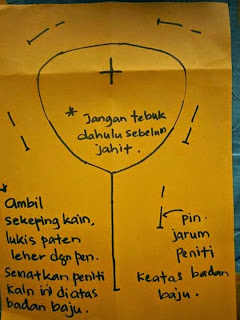 * Jangan tebuk
dahulu sebelum
jahit.
* Ambil
sekeping kain,
lukis paten
leher dgn pen.
sematkan peniti
kain ini diatas
badan baju.
pin.
jarum
peniti
Keatas badan
baju.